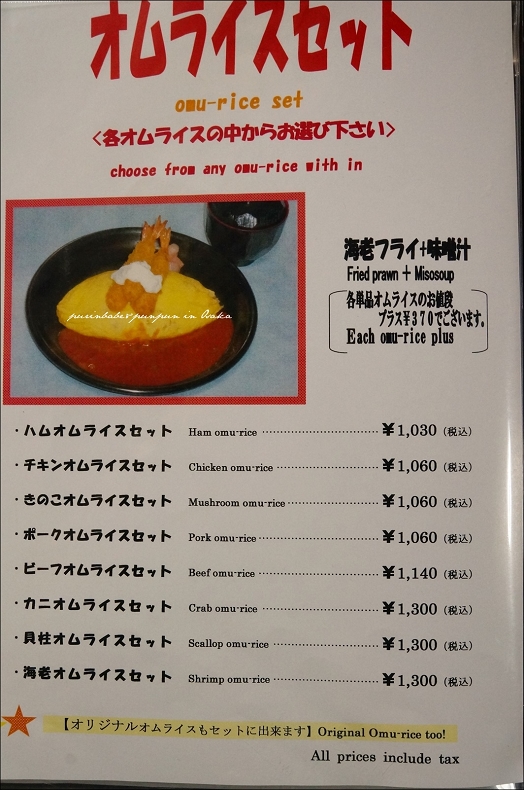 オムライスセット
omu-rice set
<各オムライスの中からお選び下さい>
choose from any omu-rice with in
purinbabe♥punpun in Osaka
海老フライ+味噌汁
Fried prawn + Misosoup
各単品オムライスのお値段
プラス¥370でございます。
Each omu-rice plus
・ハムオムライスセット Ham omu-rice ¥1,030 (税込)
・チキンオムライスセット Chicken omu-rice ¥1,060 (税込)
・きのこオムライスセット Mushroom omu-rice ¥1,060 (税込)
・ポークオムライスセット Pork omu-rice ¥1,060 (税込)
・ビーフオムライスセット Beef omu-rice ¥1,140 (税込)
・カニオムライスセット Crab omu-rice ¥1,300 (税込)
・貝柱オムライスセット Scallop omu-rice ¥1,300 (税込)
・海老オムライスセット Shrimp omu-rice ¥1,300 (税込)
【オリジナルオムライスもセットに出来ます】Original Omu-rice too!
All prices include tax